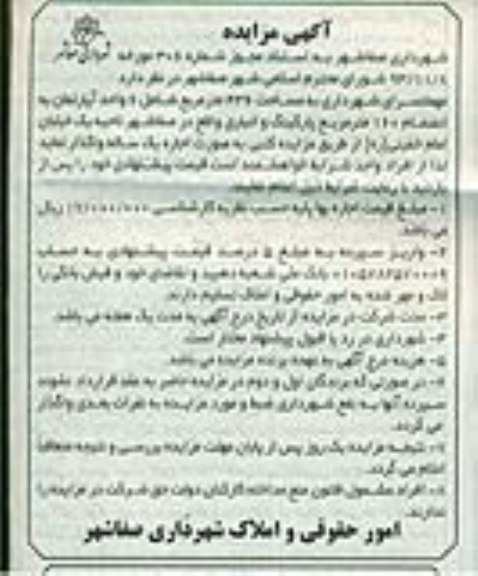 آگهی مزایده
شهرداری صفاشهر به استناد مجوز شماره ۳۰۶ مورخه
شورای محترم اسلامی شهر صفاشهر در نظر دارد
مهمانسرای شهرداری به مساحت ۴۳۹ مترمربع شامل ۶ واحد آپارتمان به
انضمام ۱۶۰ مترمربع پارکینگ و انباری واقع در صفاشهر ناحیه یک خیابان
امام خمینی(ره) از طریق مزایده کتبی به صورت اجاره یک ساله واگذار نماید
لذا از افراد واجد شرایط خواهشمند است قیمت پیشنهادی خود را پس از
بازدید با رعایت شرایط ذیل اعلام نمایند.
۱- مبلغ قیمت اجاره بها پایه حسب نظریه کارشناسی ریال
می باشد.
۲- واریز سپرده به مبلغ ۵ درصد قیمت پیشنهادی به حساب
بانک ملی شعبه دهبید و تقاضای خود و فیش بانکی را
لاک و مهر شده به امور حقوقی و املاک تسلیم دارند.
۳- مدت شرکت در مزایده از تاریخ درج آگهی به مدت یک هفته می باشد.
۴- شهرداری در رد یا قبول پیشنهاد مختار است.
۵- هزینه درج آگهی به عهده برنده مزایده می باشد.
۶- در صورتی که برندگان اول و دوم در مزایده حاضر به عقد قرارداد نشوند
سپرده آنها به نفع شهرداری ضبط و مورد مزایده به نفرات بعدی واگذار
می گردد.
۷- نتیجه مزایده یک روز پس از پایان مهلت مزایده بررسی و نتیجه متعاقبا
اعلام می گردد.
۸- افراد مشمول قانون منع مداخله کارکنان دولت حق شرکت در مزایده را
ندارند.
امور حقوقی و املاک شهرداری صفاشهر